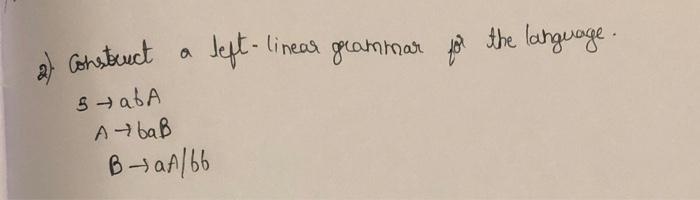 2) Construct a left-linear grammar for the language.
S → abA
A → baB
B → aA/bb